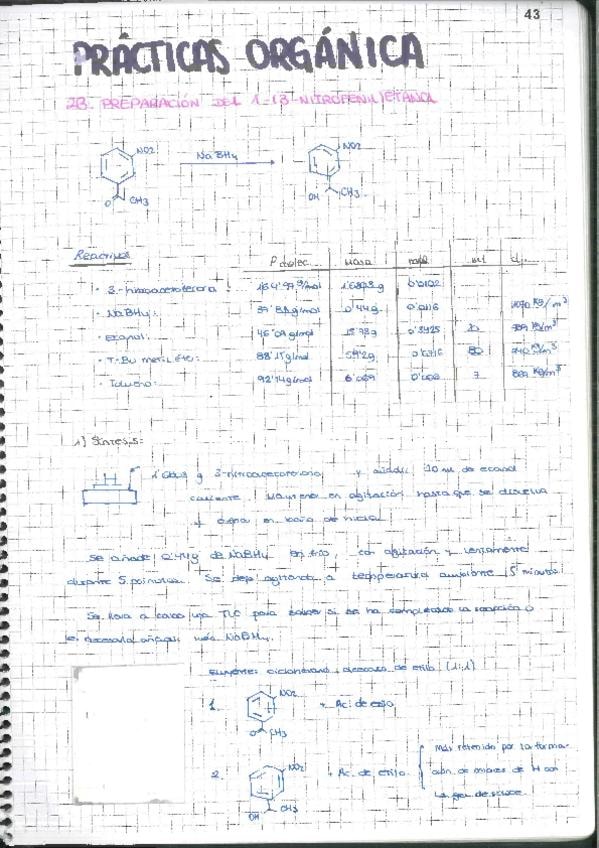 43
PRÁCTICAS ORGÁNICA
2B. PREPARACIÓN DEL 1-(3-NITROFENIL)ETANOL
NO2 NaBH4 NO2
O CH3 OH CH3
Reactivos P molec. Masa mol ml d
· 3-nitroacetofenona: g/mol
· NaBH4: g/mol 0'44g 0'0116 Kg/m³
· Etanol: 46'07g/mol 15'78g 0'3425 789 Kg/m³
· T-Bu metil éter: 88'15g/mol 80 740 Kg/m³
· Tolueno: 92'14g/mol 7 Kg/m³
1) Síntesis:
g 3-nitroacetofenona y añadir 20 ml de etanol
caliente. Mantener en agitación hasta que se disuelva
y en baño de hielo.
Se añade 0'44g de NaBH4 en frío, con agitación y lentamente
durante 5 minutos. Se deja agitando a temperatura ambiente 15 minutos
Se lleva a cabo una TLC para saber si se ha completado la reacción o
es necesario añadir más NaBH4.
Eluyente: ciclohexano, acetato de etilo (1:1)
1. NO2 + Ac. de etilo
O CH3
2. NO2 + Ac. de etilo Más retenido por la forma-
ción de enlaces de H con
la gel de sílice.
OH CH3